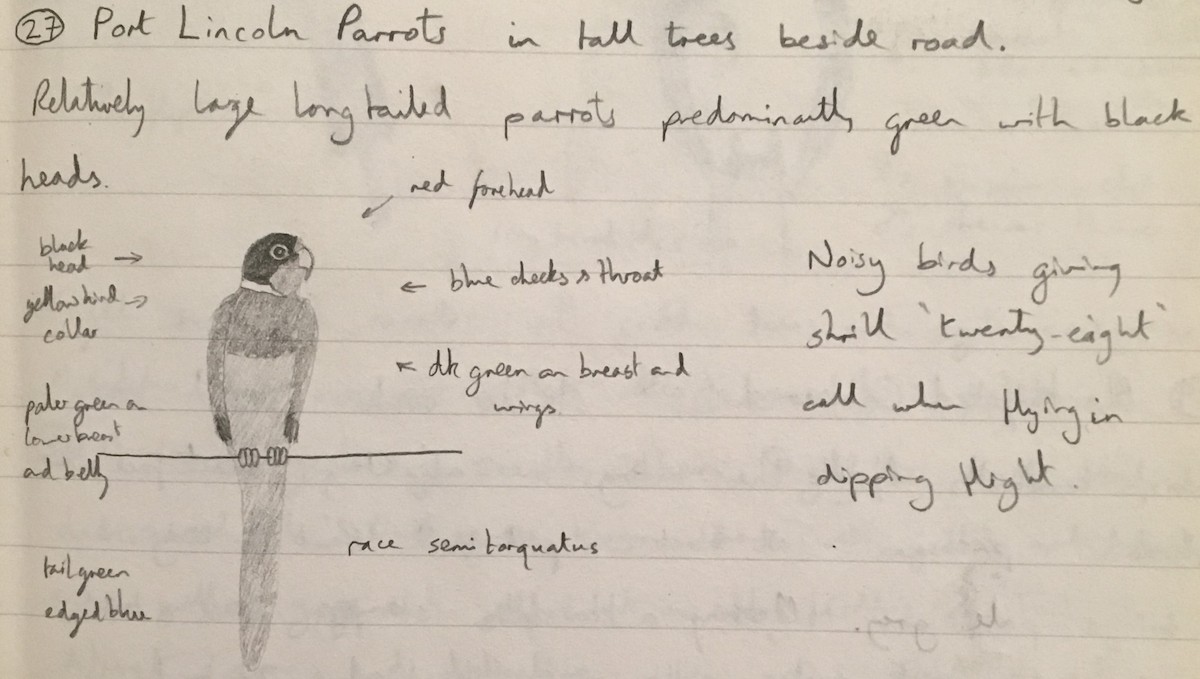 27 Port Lincoln Parrots in tall trees beside road.
Relatively large long tailed parrots predominantly green with black
heads.
red forehead
black
head
yellow hind
collar
blue cheeks & throat
dk green on breast and
wings
paler green on
lower breast
and belly
Noisy birds giving
shrill 'twenty-eight'
call when flying in
dipping flight.
race semitorquatus
tail green
edged blue